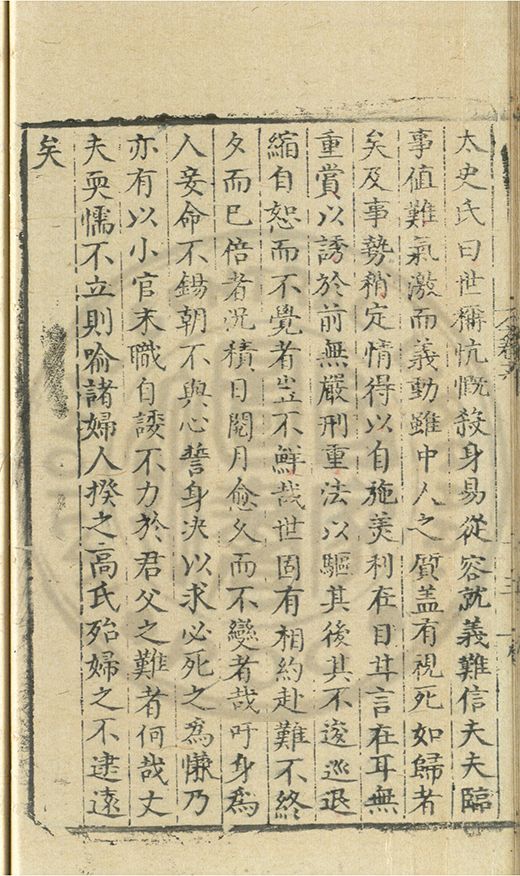 太史氏曰世稱忼慨殺身易從容就義難信夫夫臨
事值難氣激而義動雖中人之質盖有視死如歸者
矣及事勢稍定情得以自施美利在目甘言在耳無
重賞以誘於前無嚴刑重法以驅其後其不逡巡退
縮自恕而不覺者豈不鮮哉世固有相約赴難不終
夕而已倍者况積日閱月愈久而不變者哉吁身為
人妾命不錫朝不與心誓身决以求必死之為慊乃
亦有以小官末職自諉不力於君父之難者何哉丈
夫耎懦不立則喻諸婦人揆之高氏殆婦之不逮遠
矣